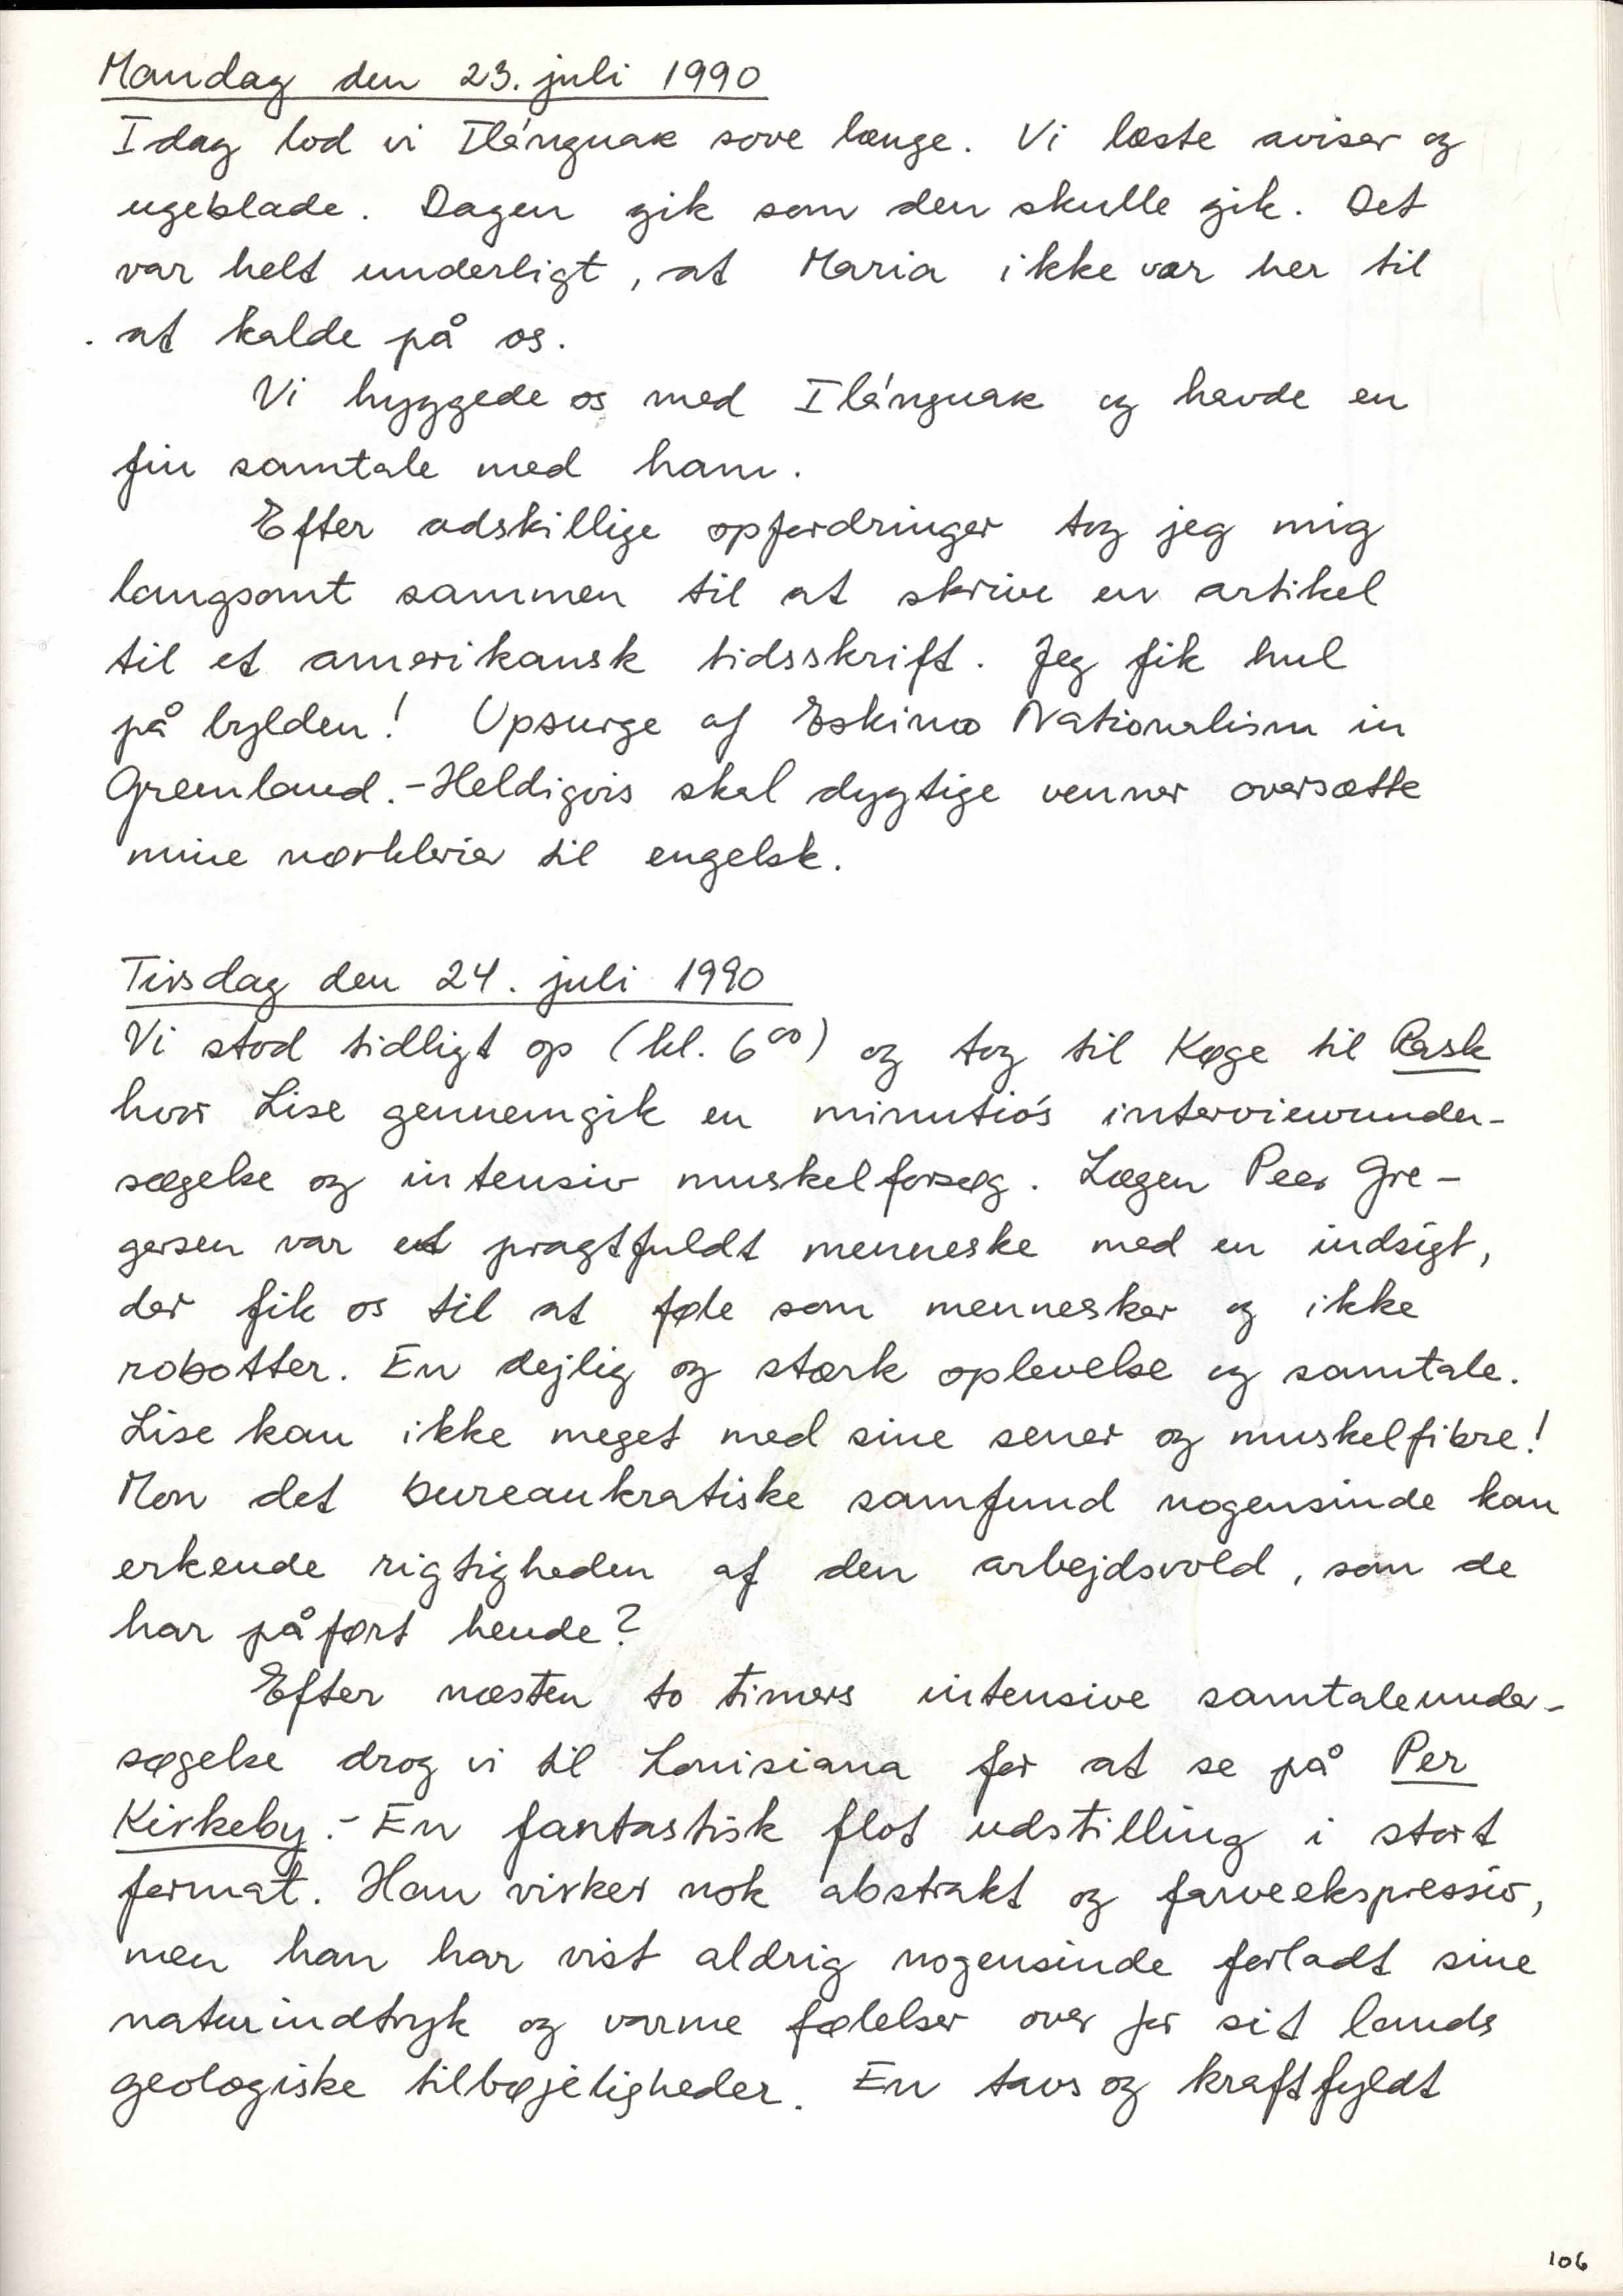 Mandag den 23. juli 1990
I dag lod vi Ilánguak sove længe. Vi læste aviser og
ugeblade. Dagen gik som den skulle gik. Det
var helt underligt, at Maria ikke var her til
at kalde på os.
Vi hyggede os med Ilánguak og havde en
fin samtale med ham.
Efter adskillige opfordringer tog jeg mig
langsomt sammen til at skrive en artikel
til et amerikansk tidsskrift. Jeg fik hul
på bylden! Upsurge of Eskimo Nationalism in
Greenland.-Heldigvis skal dygtige venner oversætte
mine værklerier til engelsk.
Tirsdag den 24. juli 1990
Vi stod tidligt op (kl. 6⁰⁰) og tog til Køge til Rask
hvor Lise gennemgik en minutiøs interviewunder-
søgelse og intensiv muskelforsøg. Lægen Peer Gre-
gersen var et pragtfuldt menneske med en indsigt,
der fik os til at føle som mennesker og ikke
robotter. En dejlig og stærk oplevelse og samtale.
Lise kan ikke meget med sine sener og muskelfibre!
Mon det bureaukratiske samfund nogensinde kan
erkende rigtigheden af den arbejdsvold, som de
har påført hende?
Efter næsten to timers intensive samtaleunder-
søgelse drog vi til Louisiana for at se på Per
Kirkeby.- En fantastisk flot udstilling i stort
format. Han virker nok abstrakt og farveekspressiv,
men han har vist aldrig nogensinde forladt sine
naturindtryk og varme følelser over for sit lands
geologiske tilbøjeligheder. En tavs og kraftfyldt
106